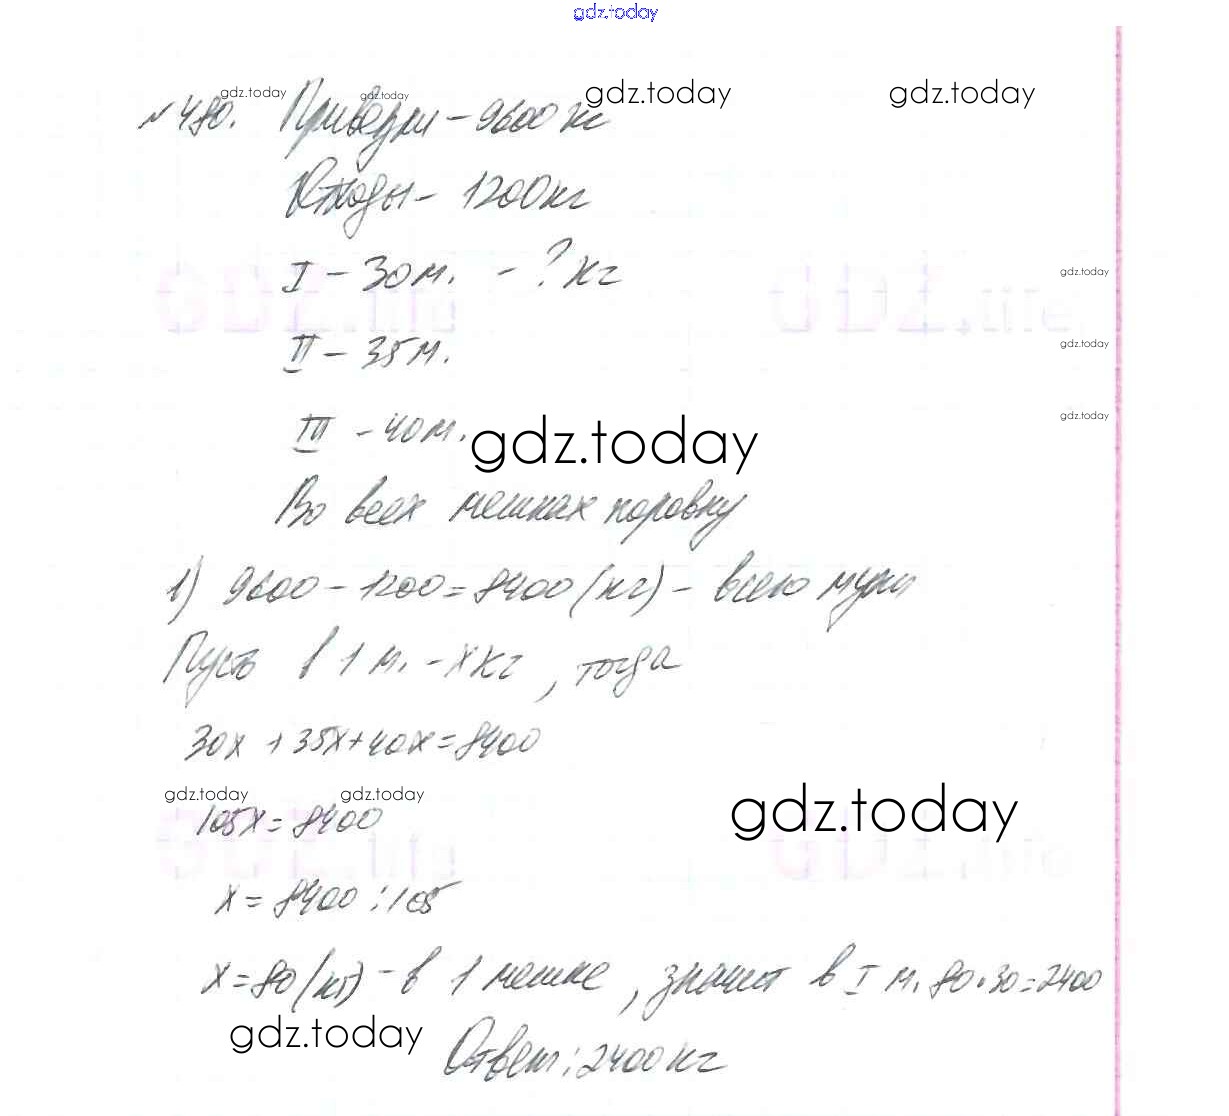 gdz.today
№480. Привезли - 9600 кг
gdz.today gdz.today gdz.today gdz.today
Отходы - 1200кг
I - 30м. - ? кг
gdz.today
GDZ.life GDZ.life
II - 35м.
gdz.today
III - 40м.
gdz.today
gdz.today
Во всех мешках поровну
1) 9600 - 1200 = 8400 (кг) - всего муки
Пусть в 1 м. - x кг, тогда
30x + 35x + 40x = 8400
gdz.today gdz.today gdz.today
105x = 8400
GDZ.life GDZ.life
x = 8400 : 105
x = 80 (кг) - в 1 мешке, значит в I м. 80·30=2400
gdz.today
Ответ: 2400 кг